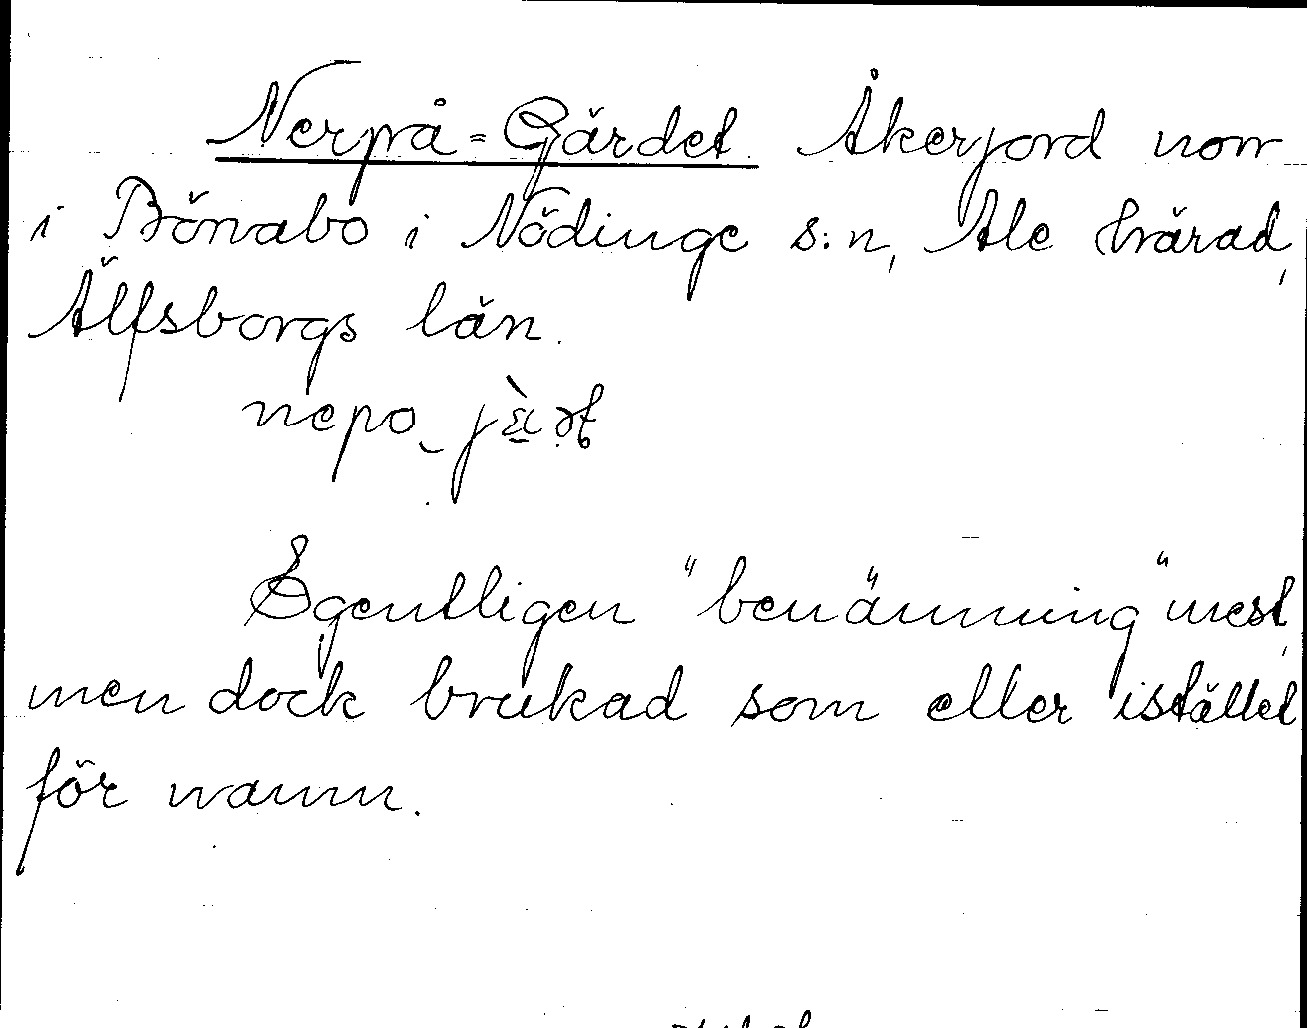 Nerpå-Gärdet. Åkerjord norr
i Bönabo i Nödinge s:n, Ale härad,
Älfsborgs län.
nepo
Egentligen "benämning" mest,
men dock brukad som eller istället
för namn.